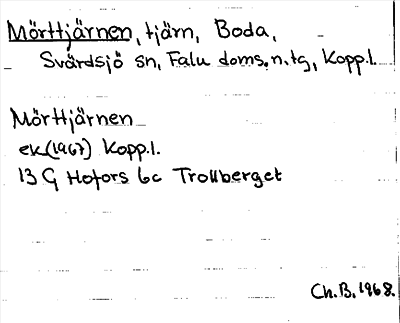 Mörttjärnen, tjärn, Boda,
Svärdsjö sn, Falu doms.n.tg, Kopp.l.
Mörttjärnen
ek(1967) Kopp.l.
13 G Hofors 6c Trollberget
Ch.B. 1968.